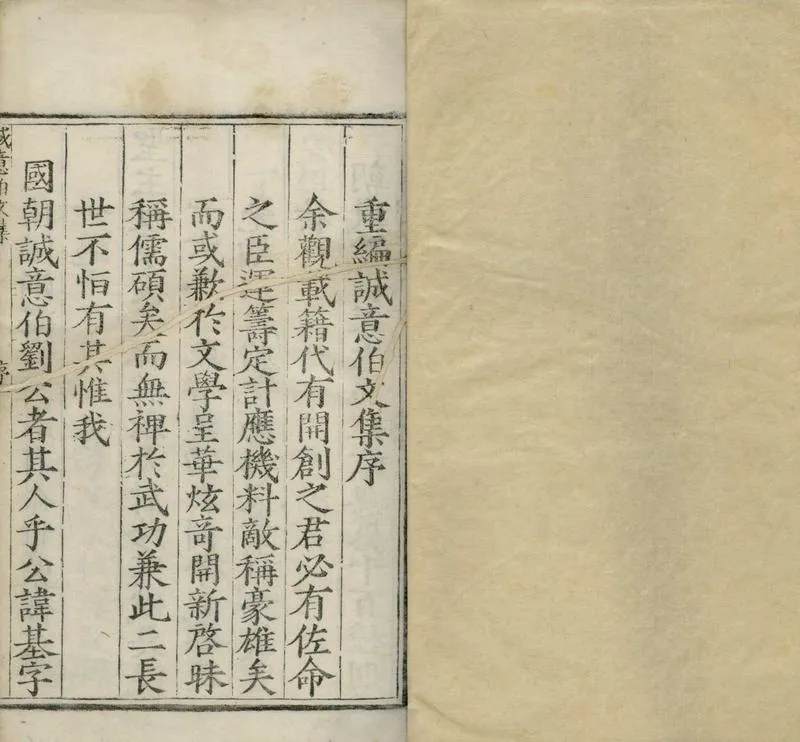 重編誠意伯文集序
余觀載籍代有開創之君必有佐命
之臣運籌定計應機料敵稱豪雄矣
而或歉於文學呈華炫奇開新啓昧
稱儒碩矣而無裨於武功兼此二長
世不恒有其惟我
國朝誠意伯劉公者其人乎公諱基字
誠意伯文集
序